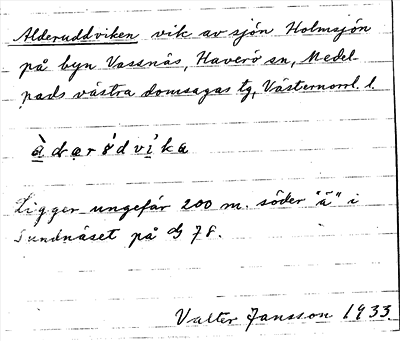 Alderuddviken vik av sjön Holmsjön
på byn Vassnäs, Haverö sn, Medel-
pads västra domsagas tg, Västernorrl. l.
Ligger ungefär 200 m. söder "ä" i
Sundnäset på G 78.
Valter Jansson 1933.